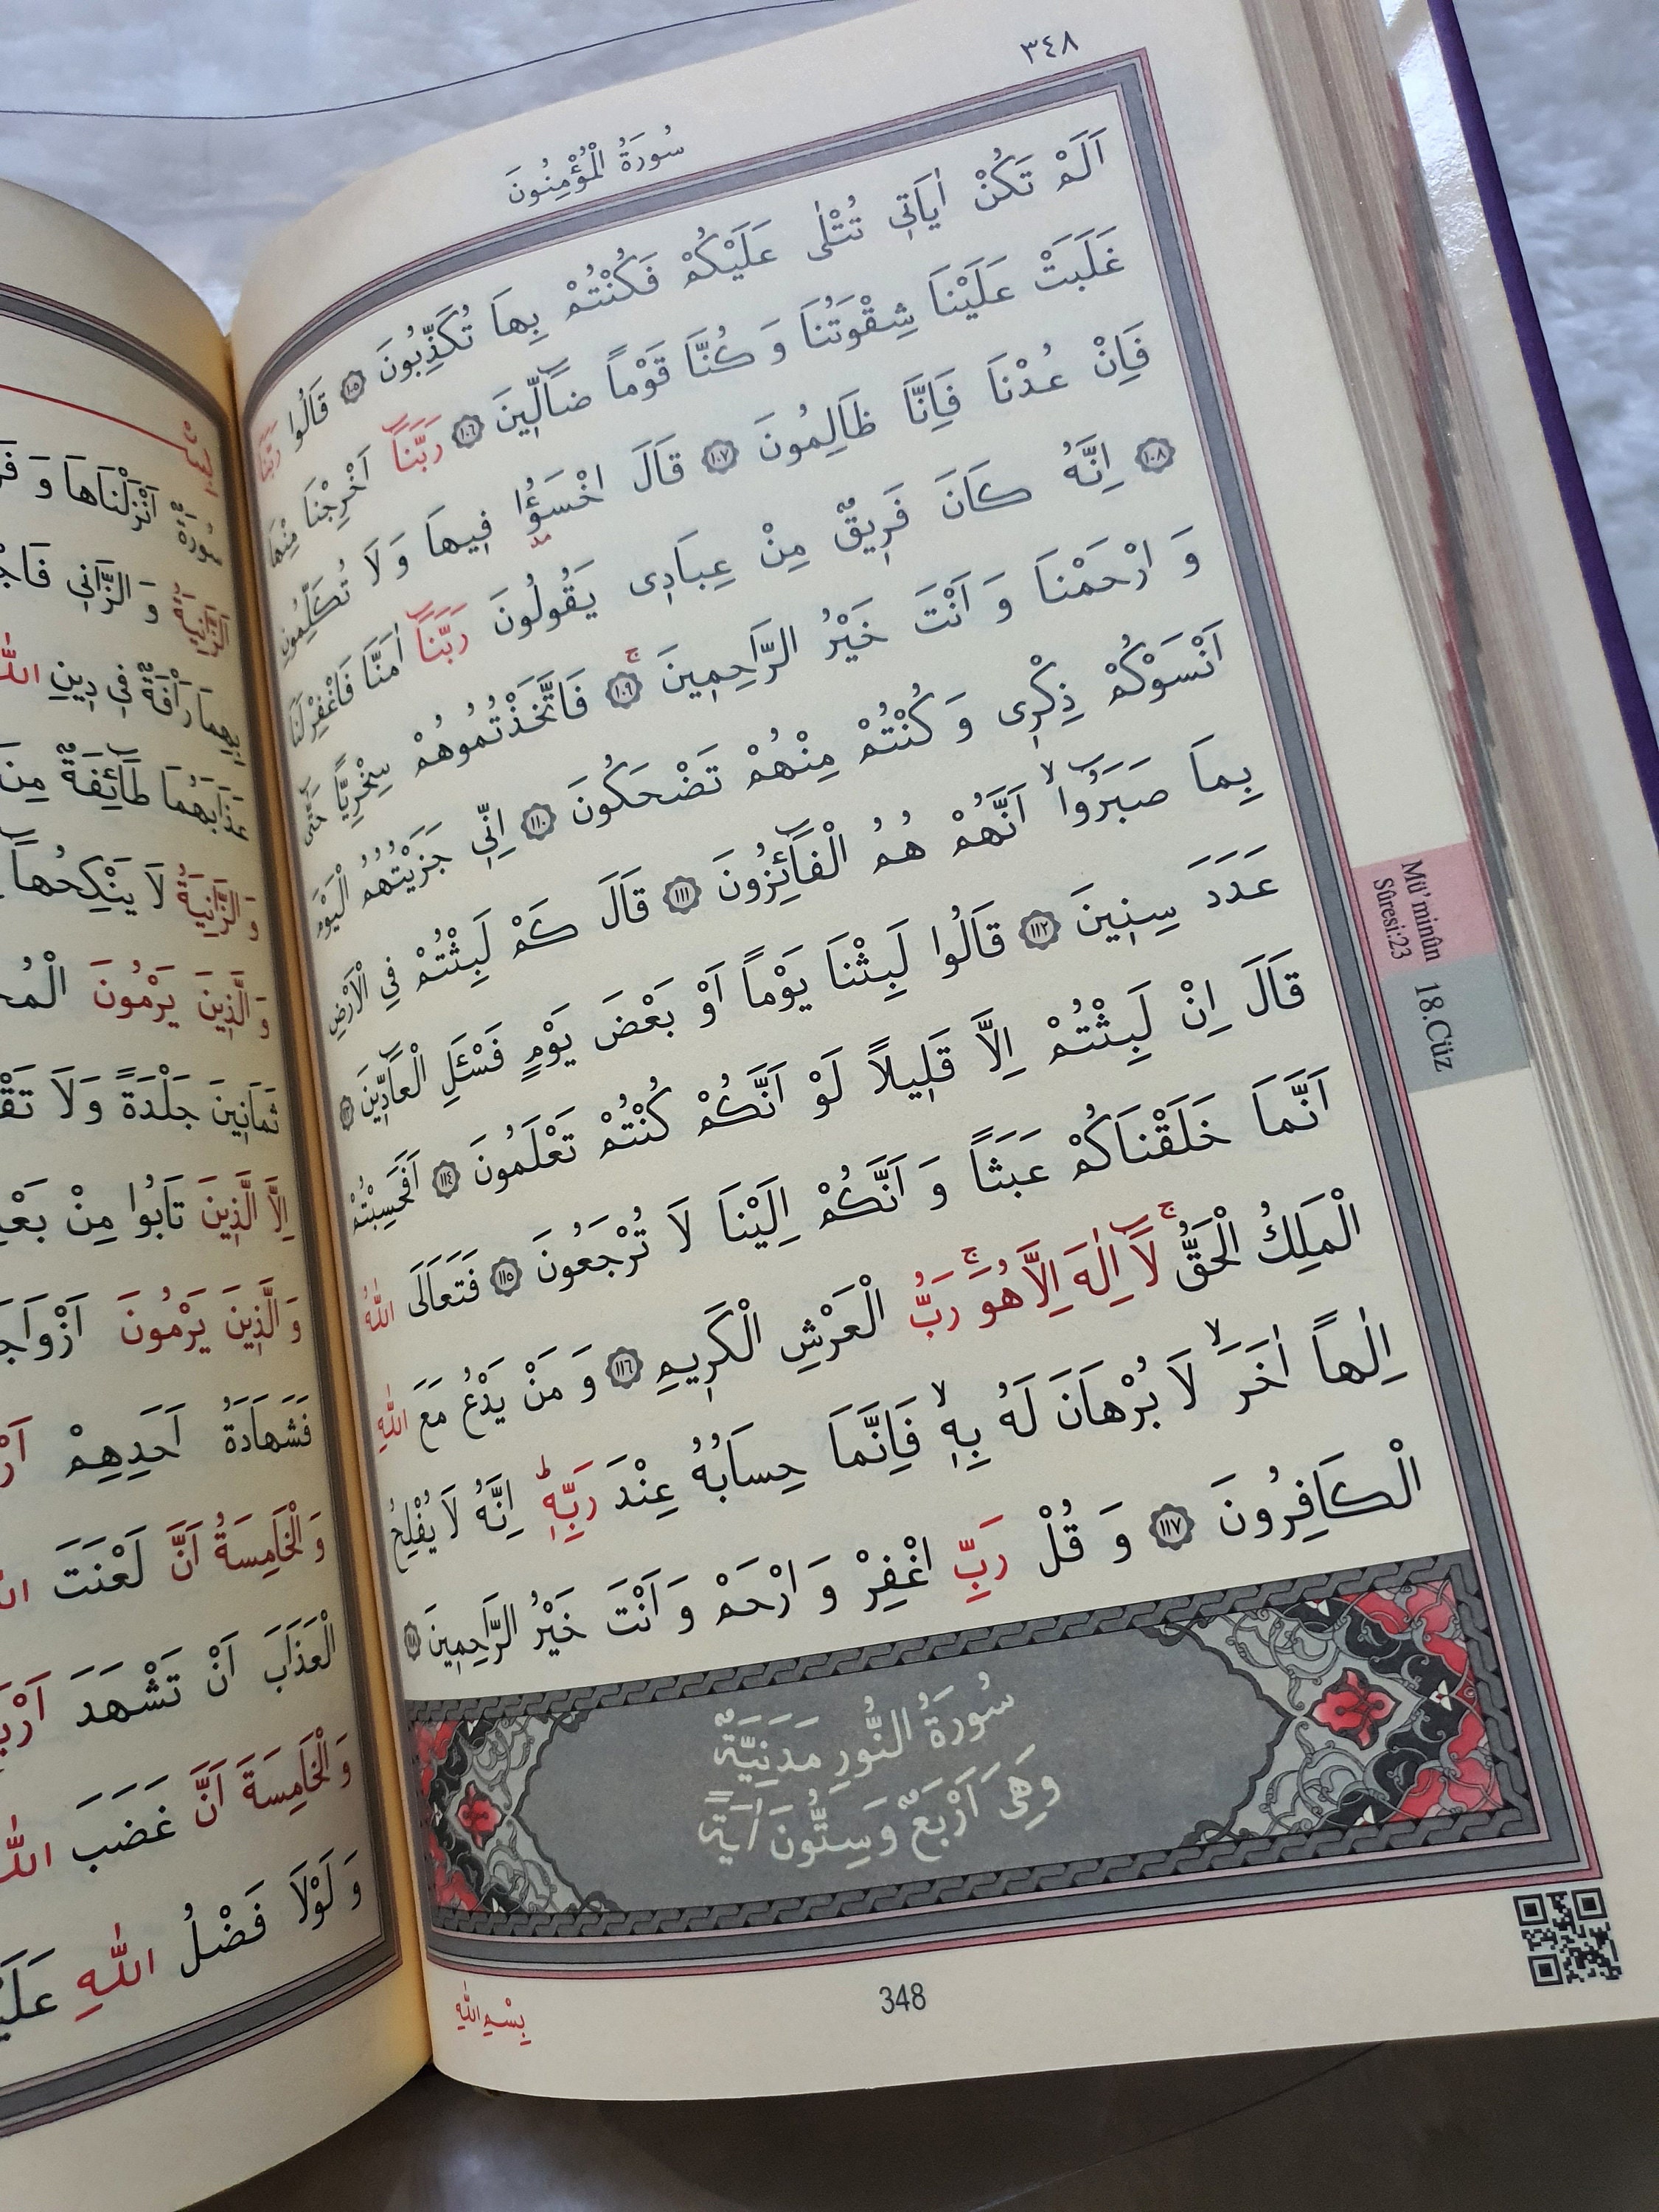 ٣٤٨
سُورَةُ الْمُؤْمِنُونَ
اَلَمْ تَكُنْ اٰيَاتٖى تُتْلٰى عَلَيْكُمْ فَكُنْتُمْ بِهَا تُكَذِّبُونَ ١٠٥ قَالُوا رَبَّنَا
غَلَبَتْ عَلَيْنَا شِقْوَتُنَا وَ كُنَّا قَوْماً ضَٓالّٖينَ ١٠٦ رَبَّنَٓا اَخْرِجْنَا مِنْهَا
فَاِنْ عُدْنَا فَاِنَّا ظَالِمُونَ ١٠٧ قَالَ اخْسَؤُا فٖيهَا وَ لَا تُكَلِّمُونِ
١٠٨ اِنَّهُ كَانَ فَرٖيقٌ مِنْ عِبَادٖى يَقُولُونَ رَبَّنَٓا اٰمَنَّا فَاغْفِرْ لَنَا
وَ ارْحَمْنَا وَ اَنْتَ خَيْرُ الرَّاحِمٖينَ ۚ ١٠٩ فَاتَّخَذْتُمُوهُمْ سِخْرِيًّا حَتّٰٓى
اَنْسَوْكُمْ ذِكْرٖى وَ كُنْتُمْ مِنْهُمْ تَضْحَكُونَ ١١٠ اِنّٖى جَزَيْتُهُمُ الْيَوْمَ
بِمَا صَبَرُٓواۙ اَنَّهُمْ هُمُ الْفَٓائِزُونَ ١١١ قَالَ كَمْ لَبِثْتُمْ فِى الْاَرْضِ
عَدَدَ سِنٖينَ ١١٢ قَالُوا لَبِثْنَا يَوْماً اَوْ بَعْضَ يَوْمٍ فَسْئَلِ الْعَٓادّٖينَ ١١٣
قَالَ اِنْ لَبِثْتُمْ اِلَّا قَلٖيلاً لَوْ اَنَّكُمْ كُنْتُمْ تَعْلَمُونَ ١١٤ اَفَحَسِبْتُمْ
اَنَّمَا خَلَقْنَاكُمْ عَبَثاً وَ اَنَّكُمْ اِلَيْنَا لَا تُرْجَعُونَ ١١٥ فَتَعَالَى اللّٰهُ
الْمَلِكُ الْحَقُّۚ لَٓا اِلٰهَ اِلَّا هُوَۚ رَبُّ الْعَرْشِ الْكَرٖيمِ ١١٦ وَ مَنْ يَدْعُ مَعَ اللّٰهِ
اِلٰهاً اٰخَرَۙ لَا بُرْهَانَ لَهُ بِهٖۙ فَاِنَّمَا حِسَابُهُ عِنْدَ رَبِّهٖؕ اِنَّهُ لَا يُفْلِحُ
الْكَافِرُونَ ١١٧ وَ قُلْ رَبِّ اغْفِرْ وَ ارْحَمْ وَ اَنْتَ خَيْرُ الرَّاحِمٖينَ ١١٨
سُورَةُ النُّورِ مَدَنِيَّةٌ
وَهِىَ اَرْبَعٌ وَسِتُّونَ اٰيَةً
348
بِسْمِ اللّٰهِ
Mü'minûn
Sûresi:23
18.Cüz
سُورَةٌ اَنْزَلْنَاهَا وَ
اَلزَّانِيَةُ وَ الزَّانٖى
بِهِمَا رَاْفَةٌ فٖى دٖينِ اللّٰهِ
عَذَابَهُمَا طَٓائِفَةٌ مِنَ
وَ الزَّانِيَةُ لَا يَنْكِحُهَٓا
وَ الَّذٖينَ يَرْمُونَ
ثَمَانٖينَ جَلْدَةً وَلَا
اِلَّا الَّذٖينَ تَابُوا مِنْ
وَ الَّذٖينَ يَرْمُونَ
فَشَهَادَةُ اَحَدِهِمْ
وَ الْخَامِسَةُ اَنَّ لَعْنَتَ
الْعَذَابَ اَنْ تَشْهَدَ
وَ الْخَامِسَةَ اَنَّ غَضَبَ
وَ لَوْلَا فَضْلُ اللّٰهِ